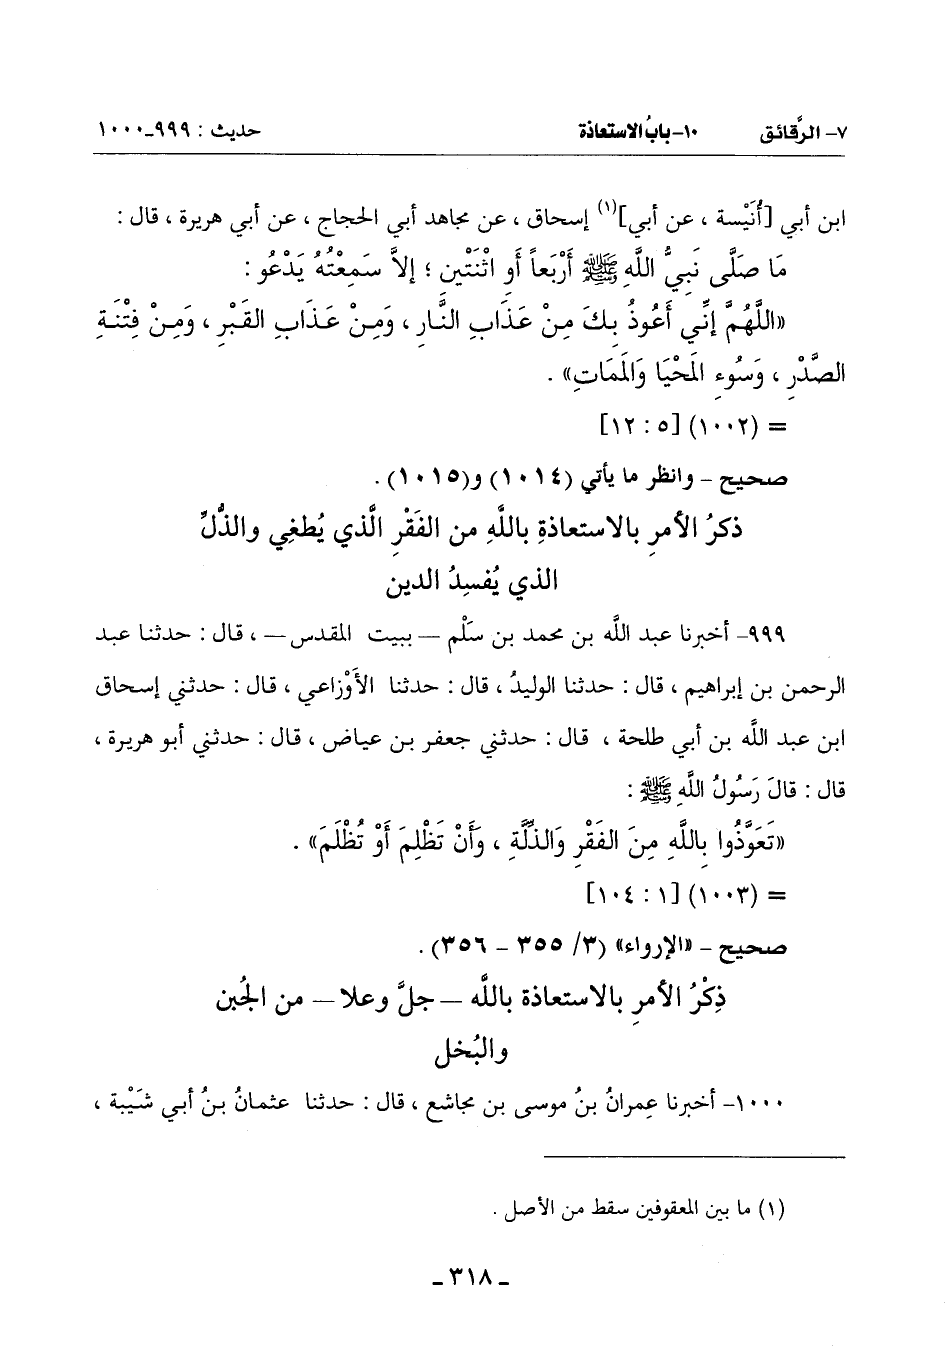 ٧- الرَّقائق ١٠-بابُ الاستعاذة حديث : ٩٩٩-١٠٠٠
ابن أبي [أُنَيْسة ، عن أبي](١) إسحاق ، عن مجاهد أبي الحجاج ، عن أبي هريرة ، قال :
مَا صَلَّى نَبِيُّ اللَّهِ ﷺ أَرْبَعاً أَوِ اثْنَتْينِ ؛ إلاَّ سَمِعْتُهُ يَدْعُو :
«اللَّهُمَّ إِنِّي أَعُوذُ بِكَ مِنْ عَذَابِ النَّارِ ، وَمِنْ عَذَابِ القَبْرِ ، وَمِنْ فِتْنَةِ
الصَّدْرِ ، وَسُوءِ المَحْيَا وَالمَمَاتِ» .
= (١٠٠٢) [٥ : ١٢]
صحيح - وانظر ما يأتي (١٠١٤) و(١٠١٥) .
ذكرُ الأمرِ بالاستعاذةِ باللَّهِ من الفَقْرِ الَّذي يُطغِي والذُّلِّ
الذي يُفسِدُ الدين
٩٩٩- أخبرنا عبد اللَّه بن محمد بن سَلْم — ببيت المقدس — ، قال : حدثنا عبد
الرحمن بن إبراهيم ، قال : حدثنا الوليدُ ، قال : حدثنا الأَوْزاعي ، قال : حدثني إسحاق
ابن عبد اللَّه بن أبي طلحة ، قال : حدثني جعفر بن عياض ، قال : حدثني أبو هريرة ،
قال : قالَ رَسُولُ اللَّهِ ﷺ :
«تَعَوَّذُوا بِاللَّهِ مِنَ الفَقْرِ وَالذِّلَّةِ ، وَأَنْ تَظْلِمَ أَوْ تُظْلَمَ» .
= (١٠٠٣) [١ : ١٠٤]
صحيح - «الإرواء» (٣/ ٣٥٥ - ٣٥٦) .
ذِكْرُ الأمرِ بالاستعاذة باللَّه — جلَّ وعلا — من الجُبن
والبُخل
١٠٠٠- أخبرنا عِمرانُ بنُ موسى بن مجاشع ، قال : حدثنا عثمانُ بنُ أبي شَيْبة ،
(١) ما بين المعقوفين سقط من الأصل .
- ٣١٨ -